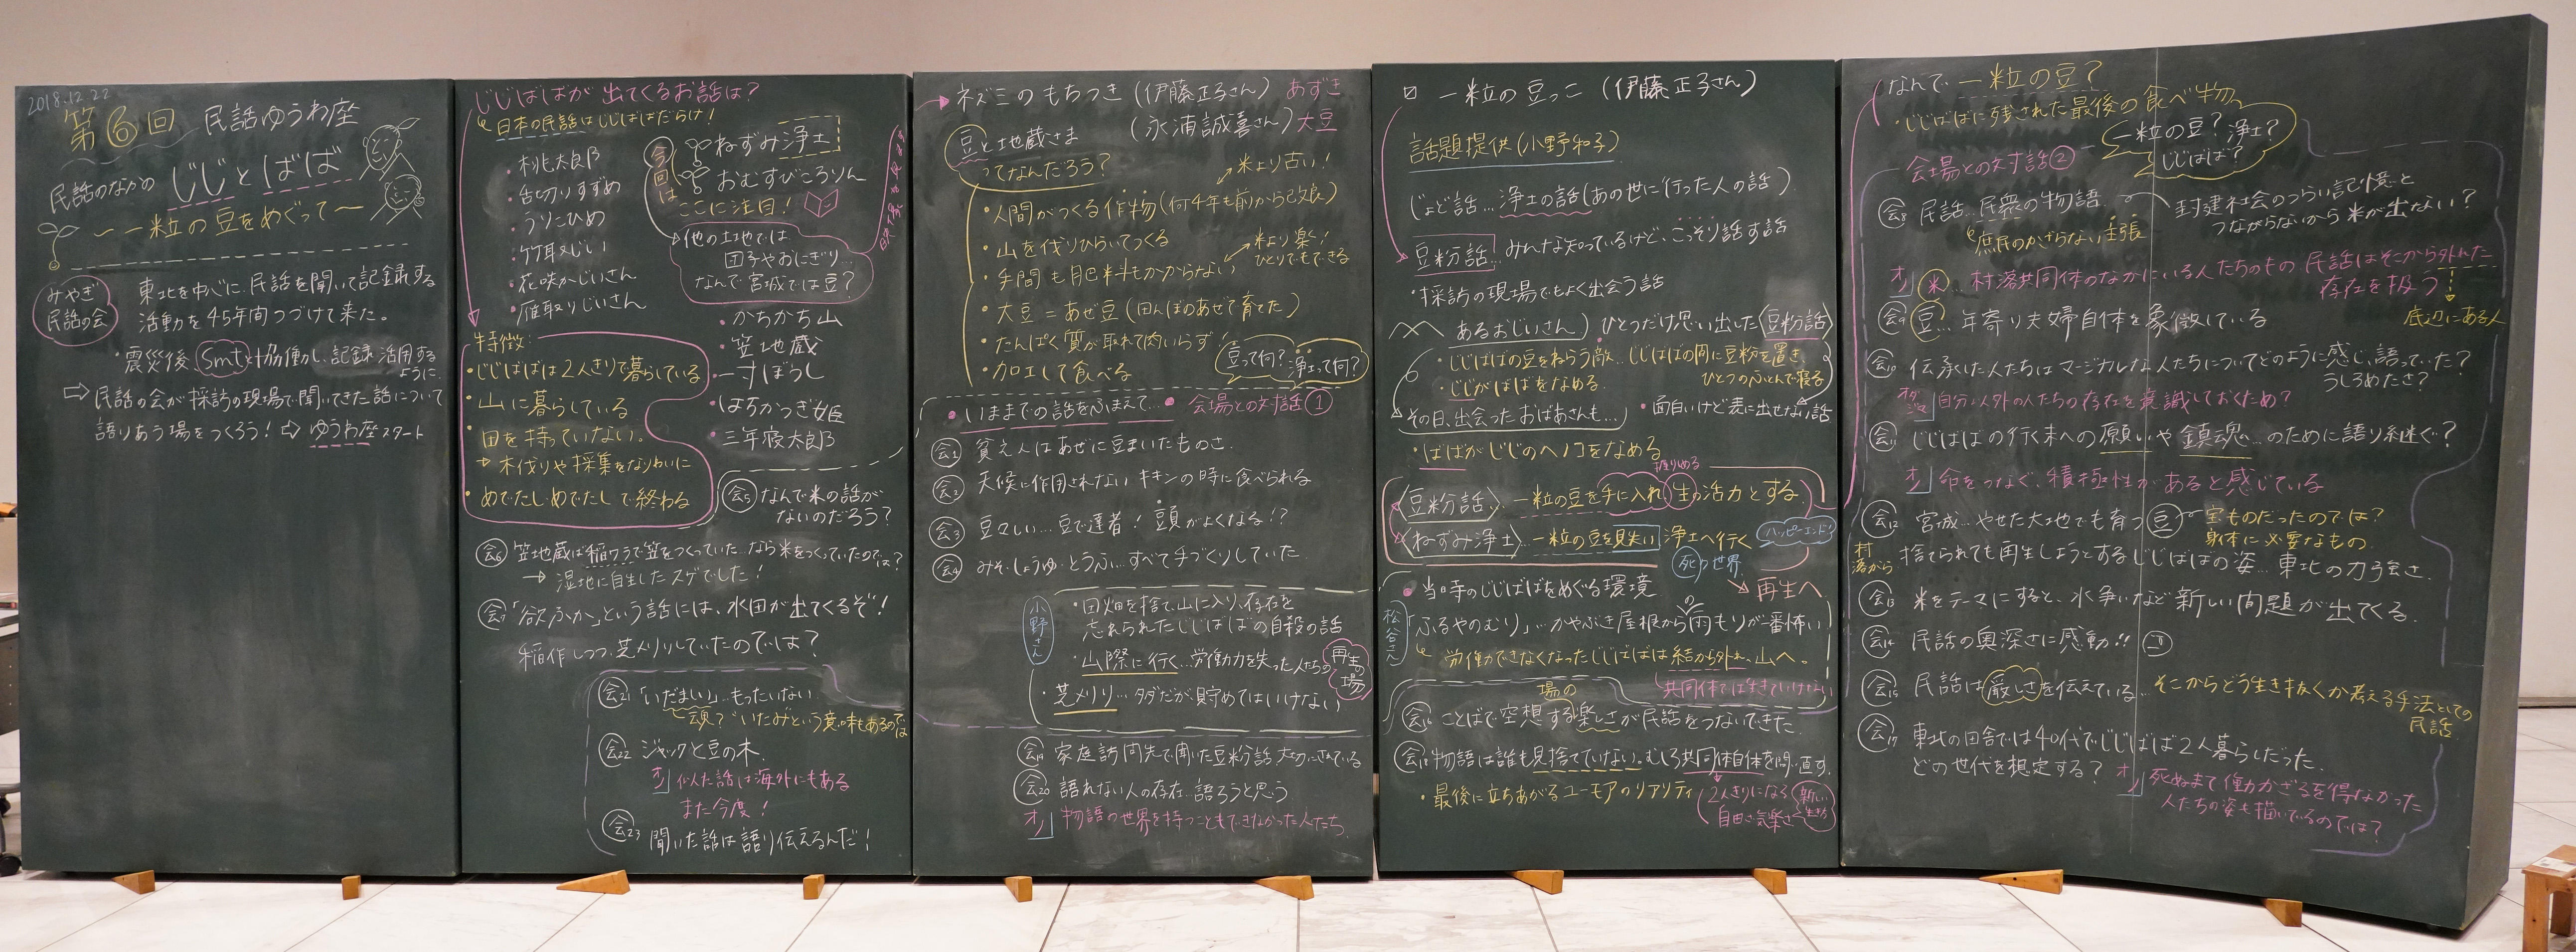 2018.12.22
第6回 民話ゆうわ座
民話のなかの じじとばば
〜一粒の豆をめぐって〜
みやぎ民話の会
東北を中心に、民話を聞いて記録する
活動を45年間つづけて来た。
・震災後、smtと協働し、記録・活用する
ように。
⇨民話の会が採訪の現場で聞いてきた話について
語りあう場をつくろう！⇨ゆうわ座スタート
じじばばが出てくるお話は？
日本の民話はじじばばだらけ！
・桃太郎
・舌切りすずめ
・うりこひめ
・竹取じい
・花咲かじいさん
・雁取りじいさん
今回は
ねずみ浄土
おむすびころりん
ここに注目！
他の土地では
団子やおにぎり…
なんで宮城では豆？
・かちかち山
・笠地蔵
・一寸ぼうし
・はちかつぎ姫
・三年寝太郎
特徴：
・じじばばは2人きりで暮らしている
・山に暮らしている
・田を持っていない。
→木伐りや採集をなりわいに
・めでたしめでたしで終わる
会5 なんで米の話が
ないのだろう？
会6 笠地蔵は稲ワラで笠をつくっていた…なら米をつくっていたのでは？
→湿地に自生したスゲでした！
会7 「欲ふか」という話には、水田が出てくるぞ！
稲作しつつ、芝刈りしていたのでは？
会21 「いだましい」…もったいない
魂？"いたみ"という意味もあるのでは
会22 ジャックと豆の木
オノ 似た話は海外にもある
また今度！
会23 聞いた話は語り伝えるんだ！
ネズミのもちつき（伊藤正子さん）あずき
（永浦誠喜さん）大豆
豆と地蔵さま
ってなんだろう？
米より古い！
・人間がつくる作物（何千年も前から己娘）
・山を伐りひらいてつくる
・手間も肥料もかからない
米より楽！
ひとりでもできる
・大豆＝あぜ豆（田んぼのあぜで育てた）
・たんぱく質が取れて肉いらず！
・加工して食べる
豆って何？浄土って何？
・いままでの話をふまえて…・会場との対話①
会1 貧乏人はあぜに豆まいたものさ。
会2 天候に作用されない キキンの時に食べられる
会3 豆々しい…豆で達者！頭がよくなる！？
会4 みそ・しょうゆ・とうふ…すべて手づくりしていた
小野さん
・田畑を捨て、山に入り、存在を
忘れられたじじばばの自殺の話
・山際に行く…労働力を失った人たちの再生の場
・芝刈り…タダだが、貯めてはいけない
会19 家庭訪問先で聞いた豆粉話 大切にされている
会20 語れない人の存在…語ろうと思う
オノ 物語の世界を持つこともできなかった人たち
一粒の豆っこ（伊藤正子さん）
話題提供（小野和子）
じょど話…浄土の話（あの世に行った人の話）
豆粉話…みんな知っているけど、こっそり話す話
・採訪の現場でもよく出会う話
あるおじいさん）ひとつだけ思い出した豆粉話
・じじばばの豆をねらう敵…じじばばの間に豆粉を置き、
ひとつのふとんで寝る
・じじがばばをなめる
その日、出会ったおばあさんも…
・面白いけど表に出せない話
・ばばがじじのヘノコをなめる
握りしめる
豆粉話 一粒の豆を手に入れ、生の活力とする
ねずみ浄土 一粒の豆を見失い 浄土へ行く ハッピーエンド！
死の世界
→再生へ
松谷さん
・当時のじじばばをめぐる環境
「ふるやのむり」…かやぶき屋根からの雨もりが一番怖い
労働できなくなったじじばばは結から外れ、山へ。
共同体では生きていけない
会16 ことばで空想する場の楽しさが民話をつないできた
会18 物語は誰も見捨てていけない。むしろ共同体自体を問い直す。
・最後に立ちあがるユーモアのリアリティ
2人きりになる
自由さ・気楽さ
新しい生き方
なんで、一粒の豆？
・じじばばに残された最後の食べ物
一粒の豆？浄土？
じじばば？
会場との対話②
会8 民話…民衆の物語
庶民のかざらない主張
封建社会のつらい記憶と
つながらないから米が出ない？
オノ 米…村落共同体のなかにいる人たちのもの 民話はそこから外れた
存在を扱う
底辺にある人
会9 豆…年寄り夫婦自体を象徴している
会10 伝承した人たちは マージナルな人たちについてどのように感じ、語っていた？
うしろめたさ？
自分以外の人たちの存在を意識しておくため？
会11 じじばばの行く末への願いや鎮魂…のために語り継ぐ？
オノ 命をつなぐ、積極性があると感じている
会12 宮城…やせた大地でも育つ豆
宝ものだったのでは？
身体に必要なもの
村落から
捨てられても再生しようとするじじばばの姿…東北の力強さ
会13 米をテーマにすると、水争いなど新しい問題が出てくる
会14 民話の奥深さに感動！！
会15 民話は厳しさを伝えている…そこからどう生き抜くか考える手法としての
民話
会17 東北の田舎では40代でじじばば2人暮らしだった
どの世代を想定する？
オノ 死ぬまで働かざるを得なかった
人たちの姿も描いているのでは？